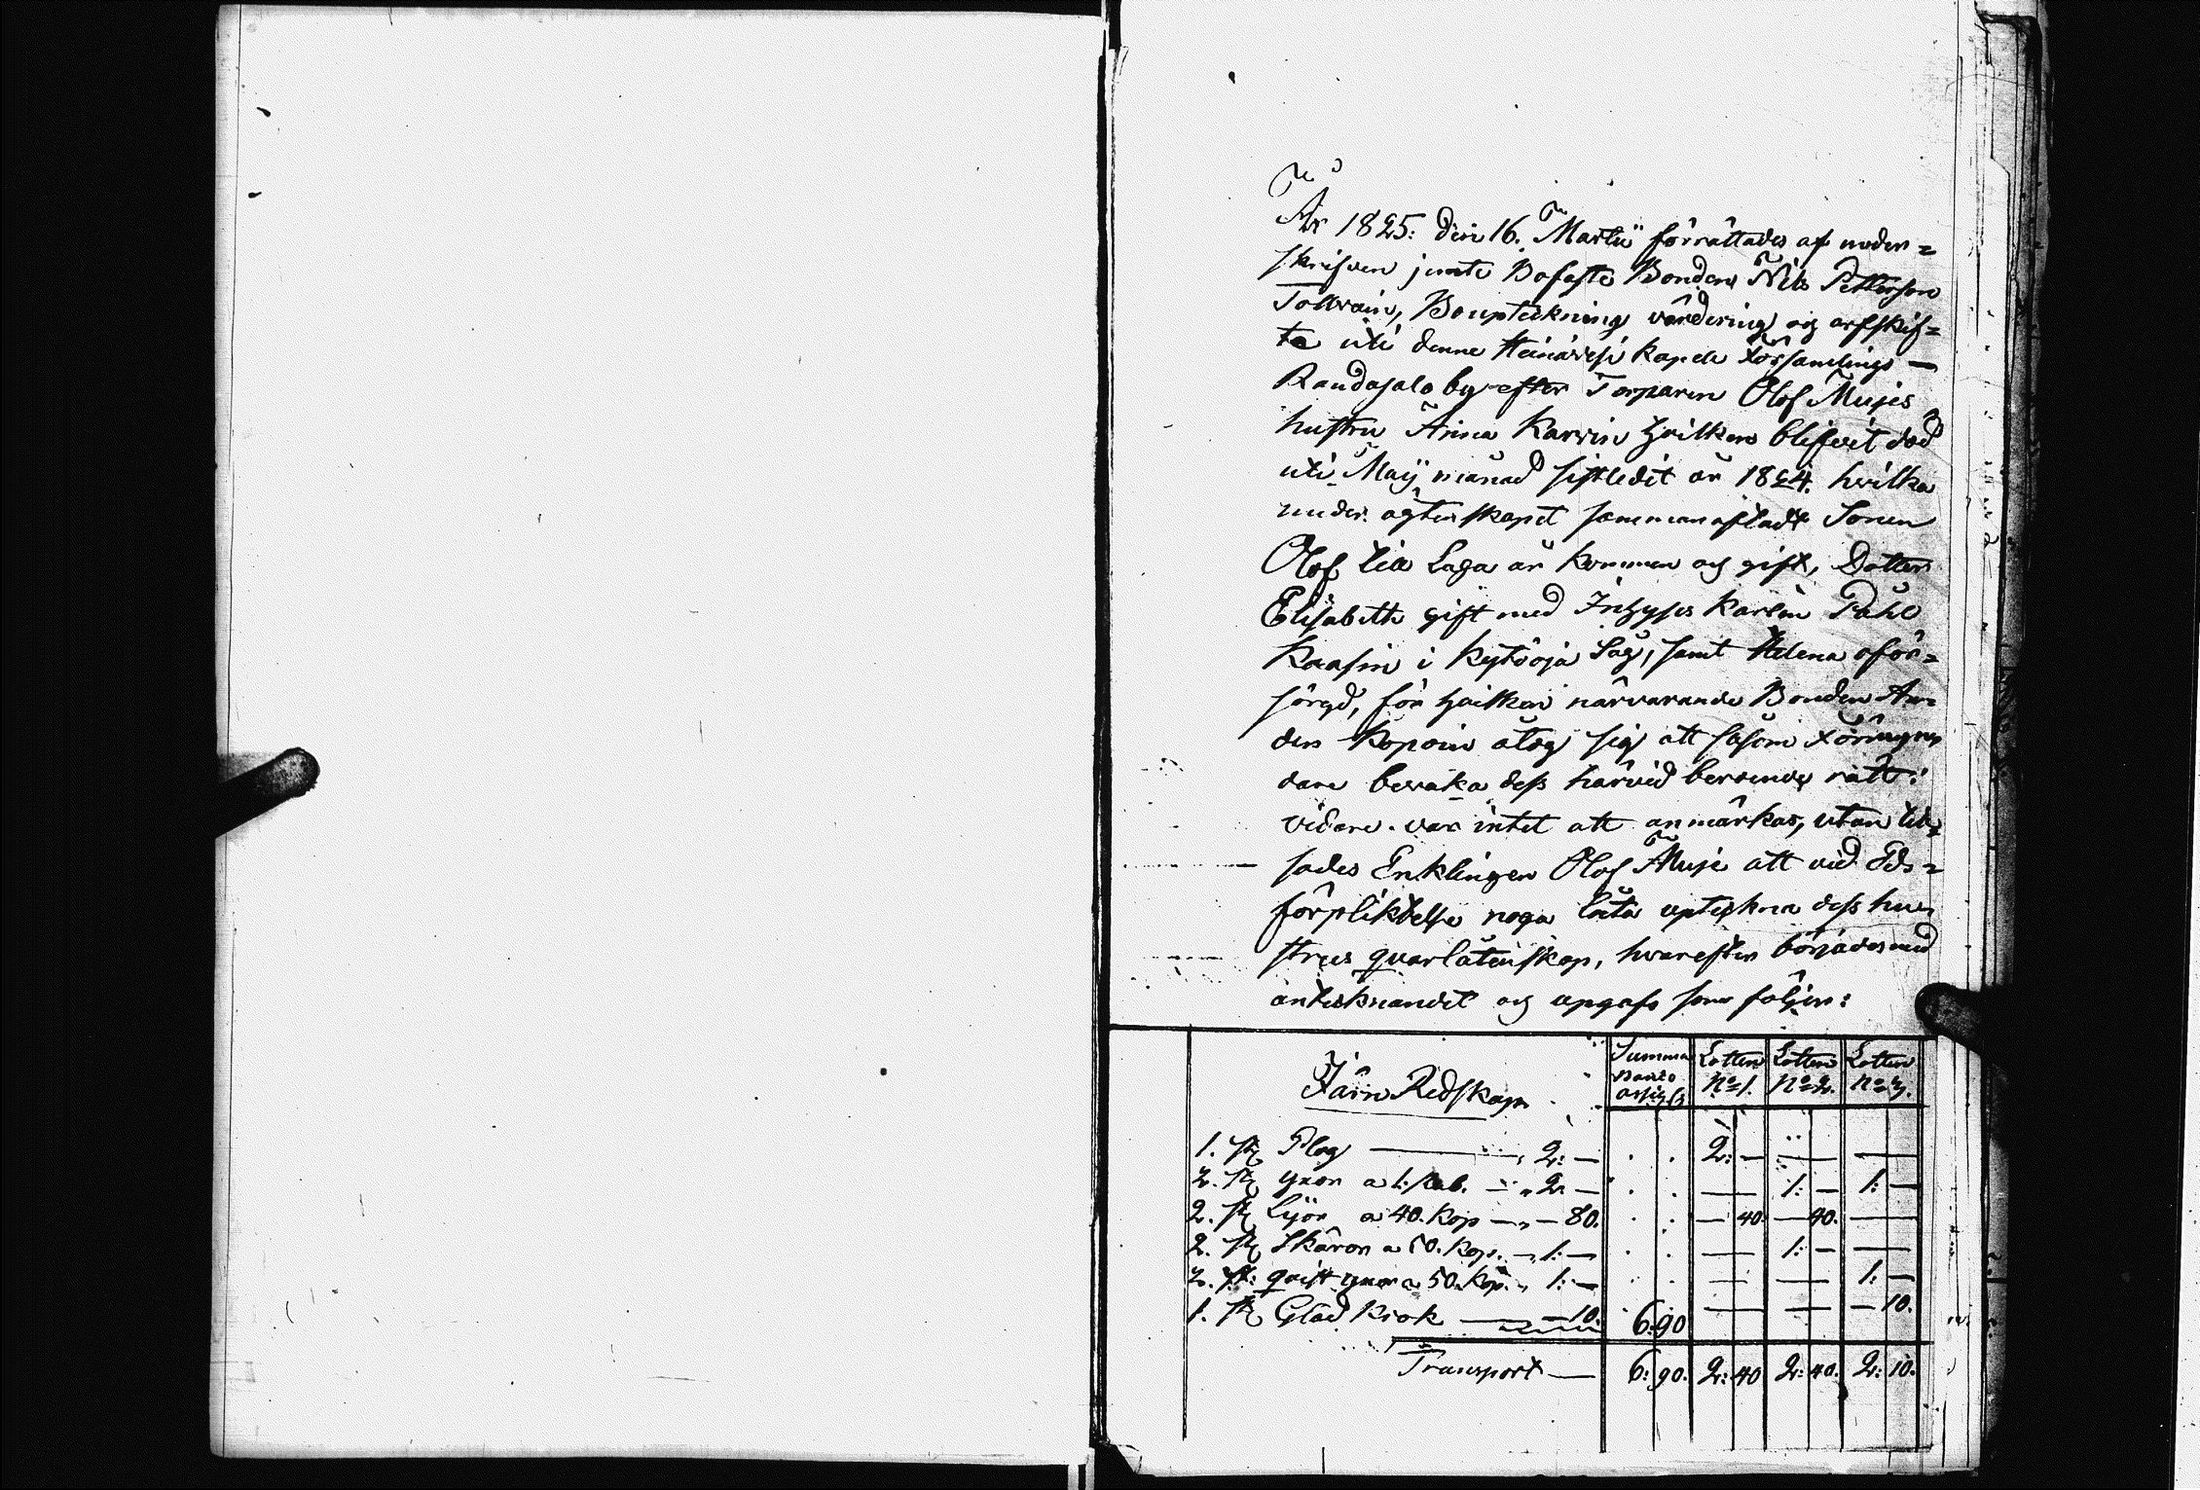 År 1825: den 16. Martii förrättades af under=
skrifven jemte Bofaste Bonden Nils Pettersson
Tolvain, Bouptekning värdering og arfskif=
te uti denne Heinävesi kapell Församlings —
Randasalo by efter Torparen Olof Mujes
hustru Anna Karvin hvilken blifvit död
uti Maij månad sistledit år 1824. hvilka
under ägtenskapet sammanafladt Sonen
Olof till Laga år kommen og gift, Dotter
Elisabeth gift med Inhyses Karlen Påhl
Kaasin i Kytöoja Såg, samt Helena oför=
sörgd, för hvilken närvarande Bonden An=
ders Kopoin åtog sig att såsom Förmyn
dare bevaka dess härvid beroende rätt:
vidare var intet att anmärkas, utan till
sades Enklingen Olof Muje att vid Eds=
förpliktelse noga låta uptekna dess hu=
strus quarlåtenskap, hvarefter börjades med
antecknandet og upgafs som följer:
Järn Redskap Summa Banco Assign Lotten No 1. Lotten No 2. Lotten No 3.
1. st Plog — 2: — 2: — — —
2. st yxor a 1: Rub. — 2: — — 1: — 1: —
2. st Lijor a 40. Kop — 80. — 40. — 40. —
2. st Skäror a 50. Kop. — 1: — — 1: — —
2. st: qvist yxor a 50. Kop. 1: — — — 1: —
1. st Glöd Krok — 10. 6: 90 — — — 10.
Transport — 6: 90. 2: 40 2: 40. 2: 10.